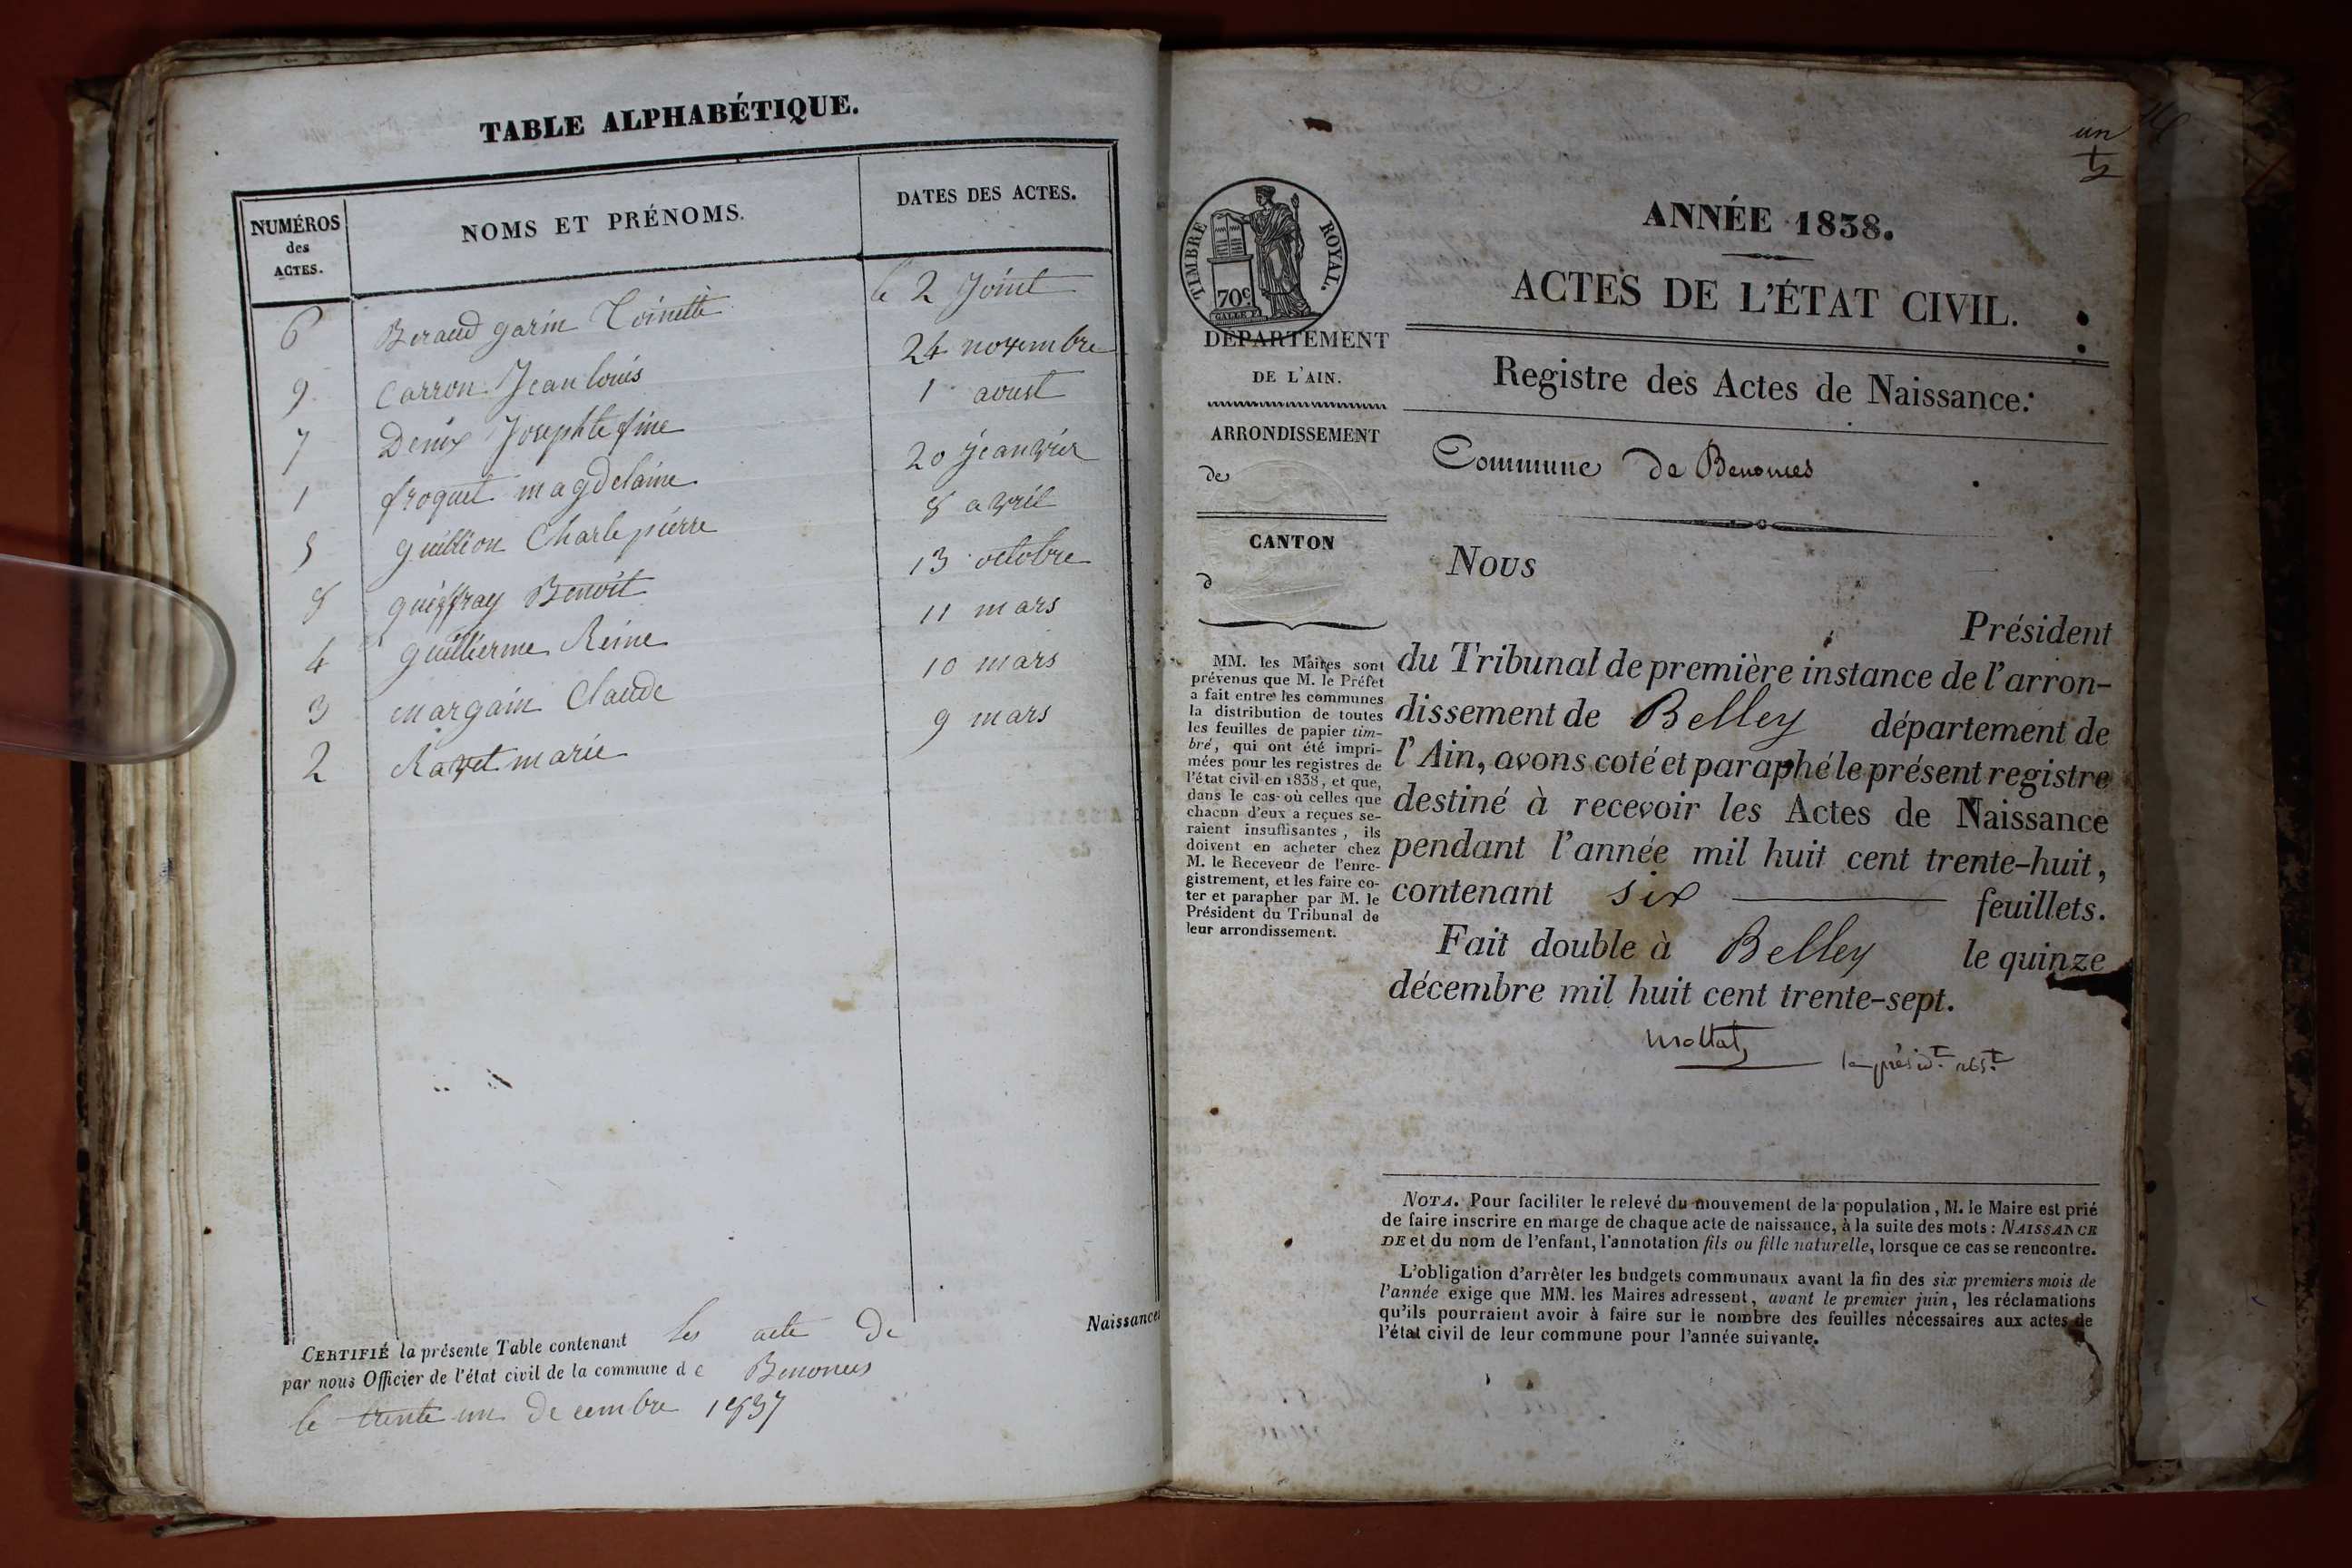 TABLE ALPHABÉTIQUE.
NUMÉROS
des
ACTES.
NOMS ET PRÉNOMS.
DATES DES ACTES.
6 Beraud garin Toinette le 2 Joint
9 Carron Jean louis 24 novembre
7 Denix Josephte fine 1 aoust
1 froquet magdelaine 20 jeanvier
5 guillion Charle pierre 8 avril
8 guiffray Benoit 13 octobre
4 guillierme Reine 11 mars
3 margain Claude 10 mars
2 Ravet marie 9 mars
CERTIFIÉ la présente Table contenant les acte de Naissances
par nous Officier de l'état civil de la commune de Benonces
le trente un decembre 1837
un
TIMBRE ROYAL.
70c
DÉPARTEMENT
DE L'AIN.
ARRONDISSEMENT
de
CANTON
d
MM. les Maires sont
prévenus que M. le Préfet
a fait entre les communes
la distribution de toutes
les feuilles de papier tim-
bré, qui ont été impri-
mées pour les registres de
l'état civil en 1838, et que,
dans le cas où celles que
chacun d'eux a reçues se-
raient insuffisantes, ils
doivent en acheter chez
M. le Receveur de l'enre-
gistrement, et les faire co-
ter et parapher par M. le
Président du Tribunal de
leur arrondissement.
ANNÉE 1838.
ACTES DE L'ÉTAT CIVIL.
Registre des Actes de Naissance.
Commune de Benonces
Nous
Président
du Tribunal de première instance de l'arron-
dissement de Belley département de
l'Ain, avons coté et paraphé le présent registre
destiné à recevoir les Actes de Naissance
pendant l'année mil huit cent trente-huit,
contenant six feuillets.
Fait double à Belley le quinze
décembre mil huit cent trente-sept.
NOTA. Pour faciliter le relevé du mouvement de la population, M. le Maire est prié
de faire inscrire en marge de chaque acte de naissance, à la suite des mots : NAISSANCE
DE et du nom de l'enfant, l'annotation fils ou fille naturelle, lorsque ce cas se rencontre.
L'obligation d'arrêter les budgets communaux avant la fin des six premiers mois de
l'année exige que MM. les Maires adressent, avant le premier juin, les réclamations
qu'ils pourraient avoir à faire sur le nombre des feuilles nécessaires aux actes de
l'état civil de leur commune pour l'année suivante.